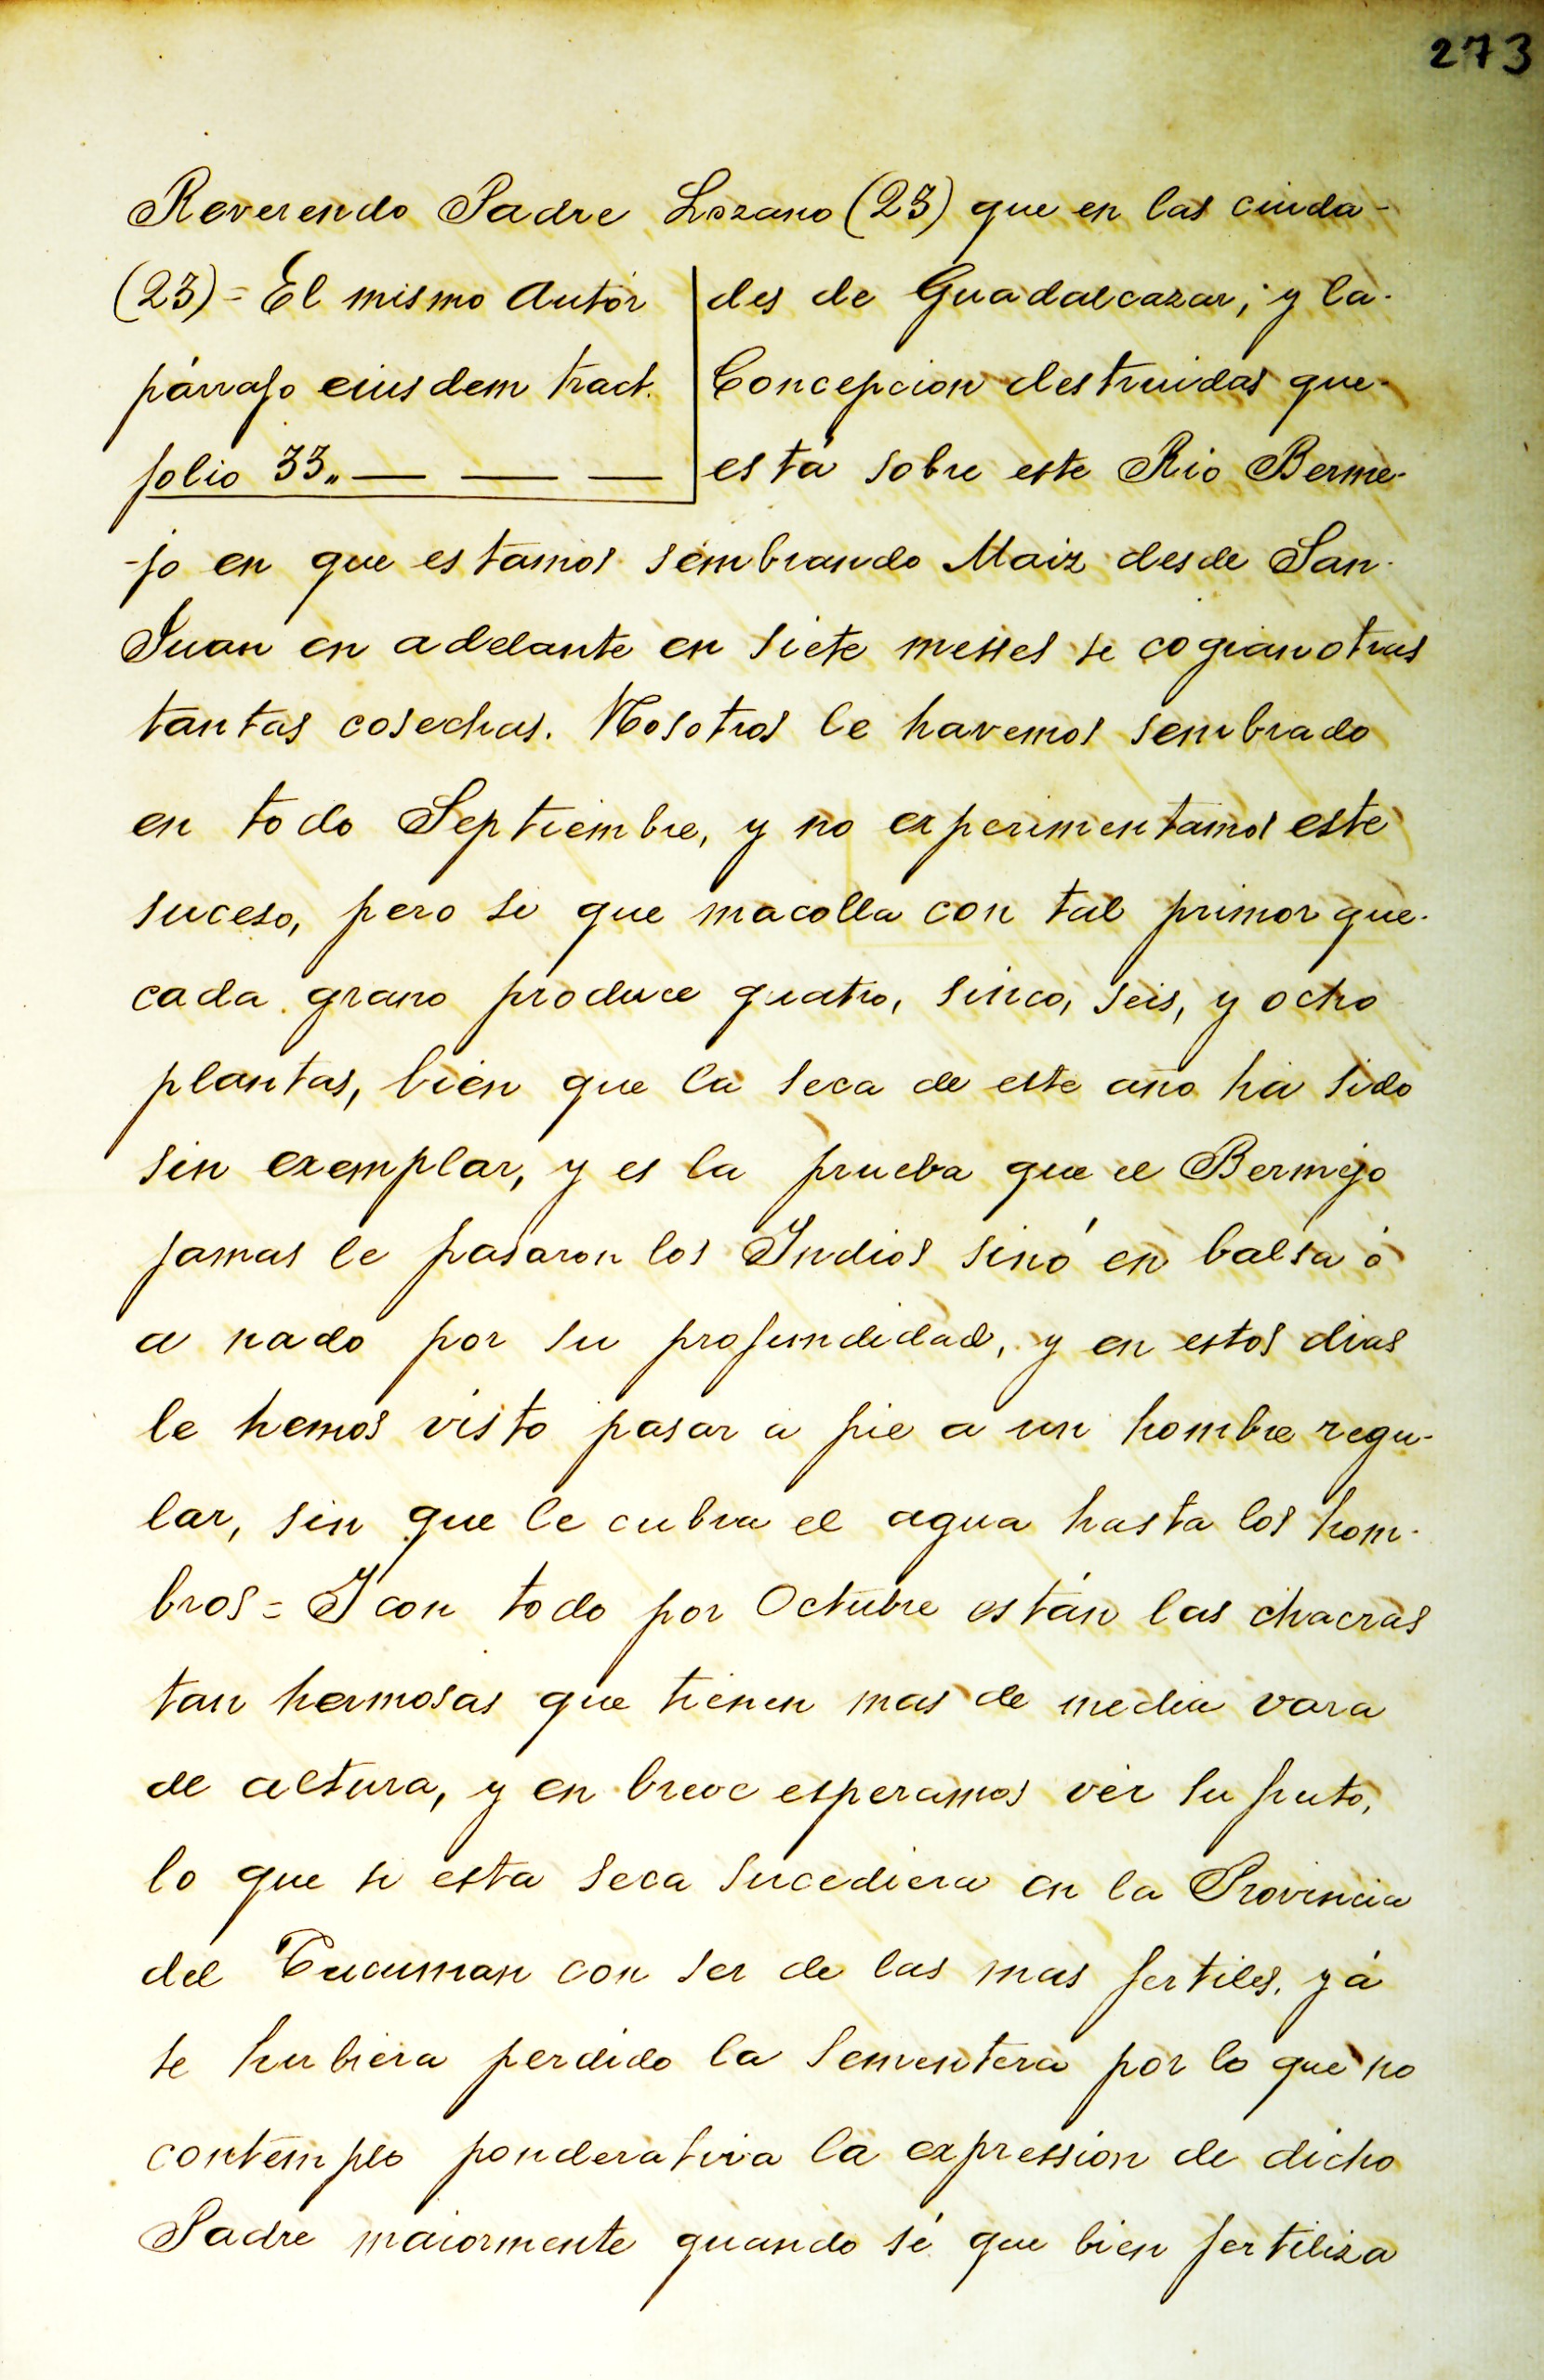 273
Reverendo Padre Lozano (23) que en las ciuda-
(23) = El mismo Autór
párrafo eiusdem tract.
folio 33„ — — —
des de Guadalcazar, y la
Concepcion destruidas que
está sobre este Rio Berme-
-jo en que estamos sembrando Maiz desde San
Juan en adelante en siete messes se cogian otras
tantas cosechas. Nosotros le havemos sembrado
en todo Septiembre, y no experimentamos este
suceso, pero si que macolla con tal primor que
cada grano produce quatro, sinco, seis, y ocho
plantas, bien que la seca de este año há sido
sin exemplar, y es la prueba que el Bermejo
jamas le pasaron los Indios sinó en balsa ó
a nado por su profundidad, y en estos dias
le hemos visto pasar a pie a un hombre regu-
lar, sin que le cubra el agua hasta los hom-
bros = I con todo por Octubre están las chacras
tan hermosas que tienen mas de media vara
de altura, y en breve esperamos vér su fruto,
lo que si esta seca sucediera en la Provincia
del Tucuman con ser de las mas fertiles, yá
se hubiera perdido la sementera por lo que no
contemplo ponderativa la expression de dicho
Padre maiormente quando sé que bien fertiliza